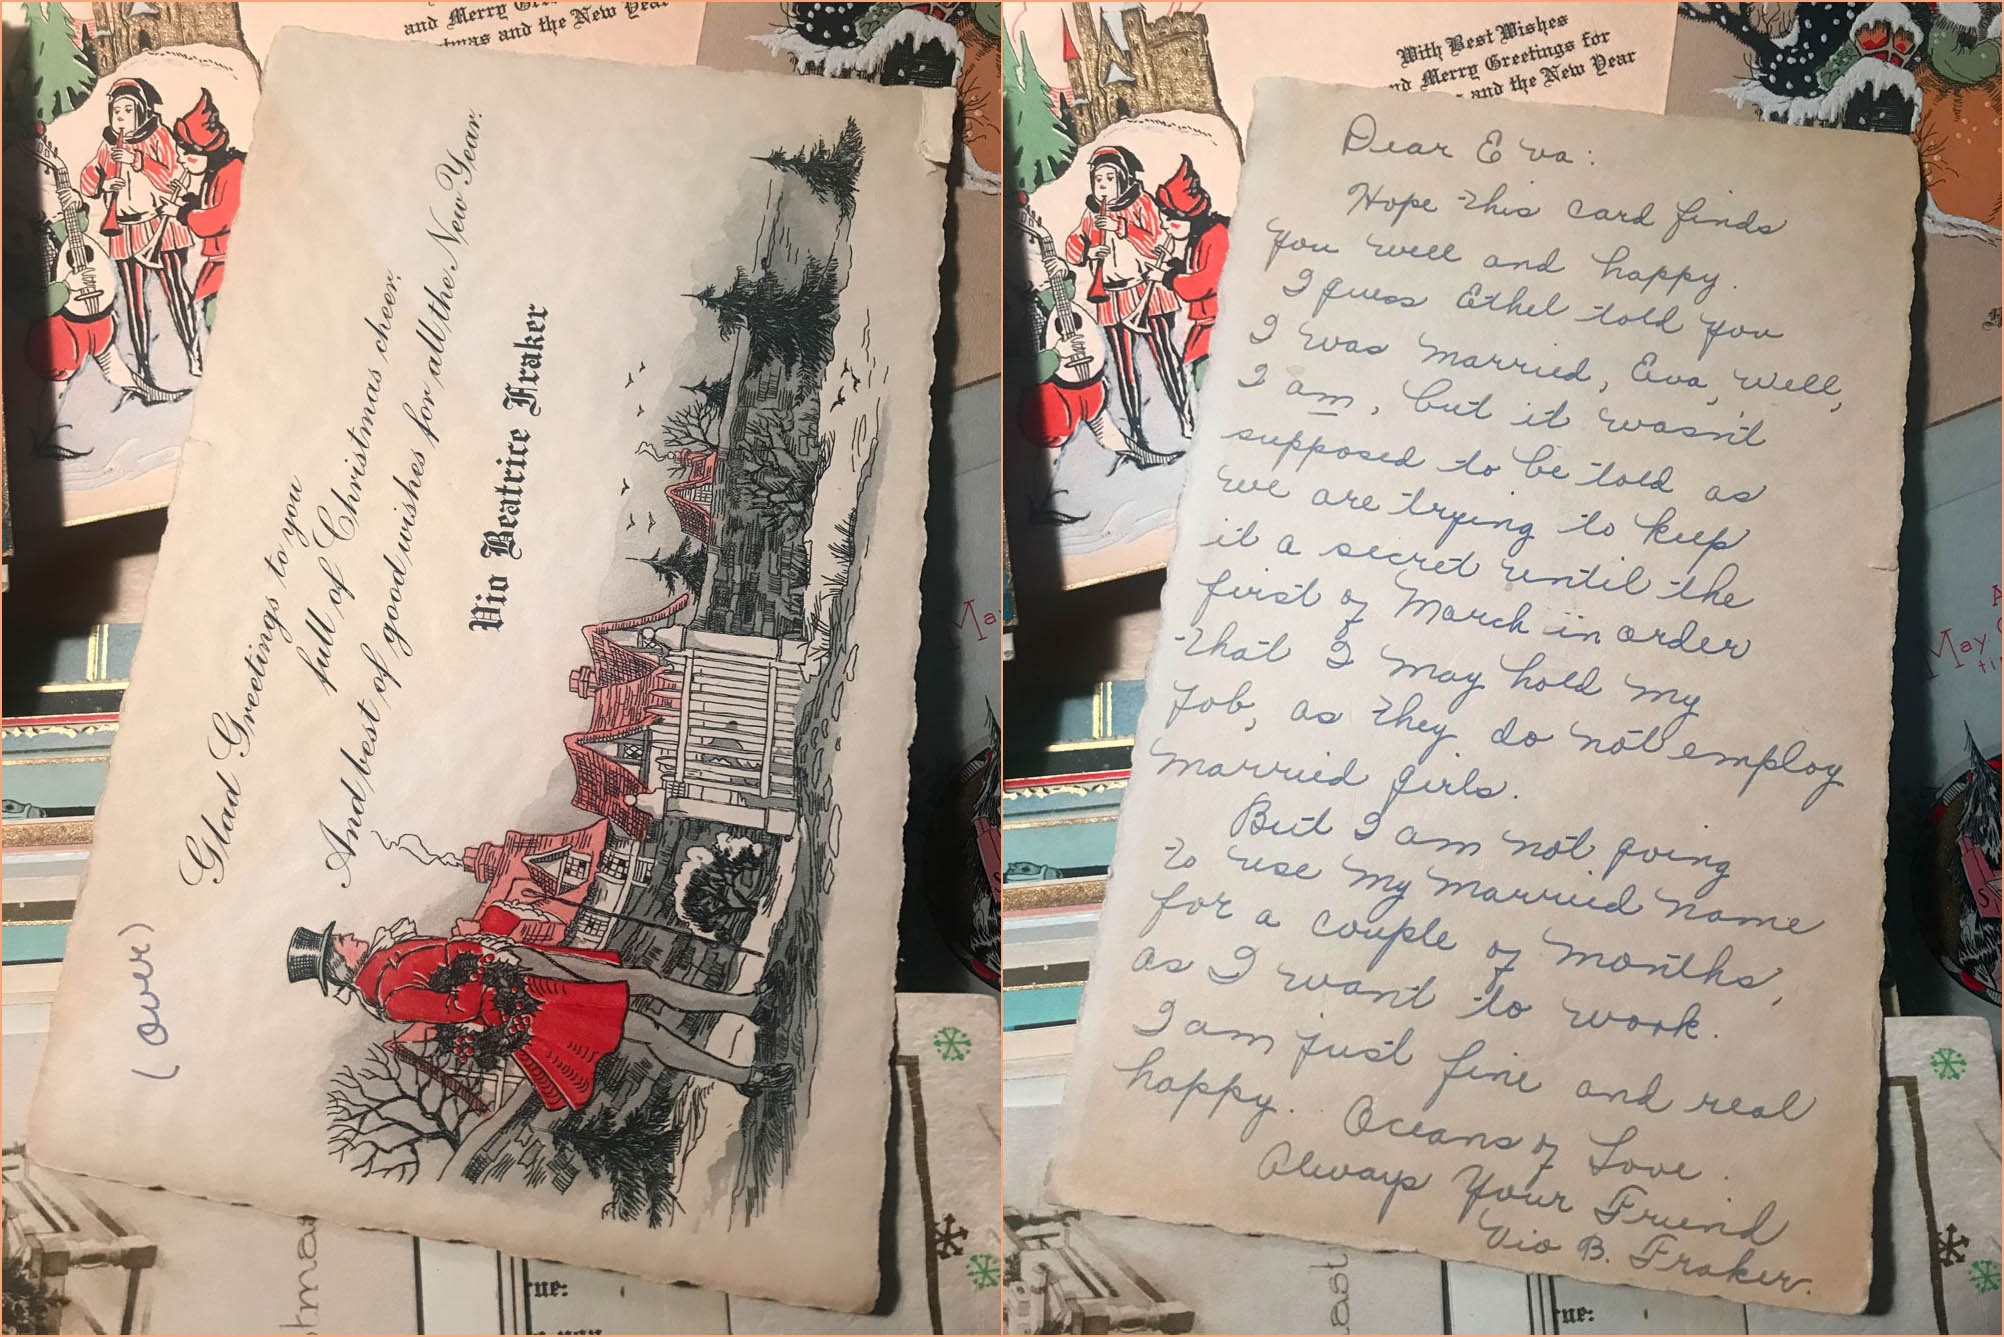 and Merry Gre
tmas and the New Year
Glad Greetings to you
full of Christmas cheer.
And best of good wishes for all the New Year.
Vio Beatrice Fraker
(over)
tmas
ue:
With Best Wishes
nd Merry Greetings for
and the New Year
Dear Eva:
Hope this card finds
you well and happy.
I guess Ethel told you
I was married, Eva, well,
I am, but it wasn't
supposed to be told as
we are trying to keep
it a secret until the
first of March in order
that I may hold my
job, as they do not employ
married girls.
But I am not going
to use my married name
for a couple of months,
as I want to work.
I am just fine and real
happy. Oceans of Love.
Always Your Friend
Vio B. Fraker.
May
ti
ue: